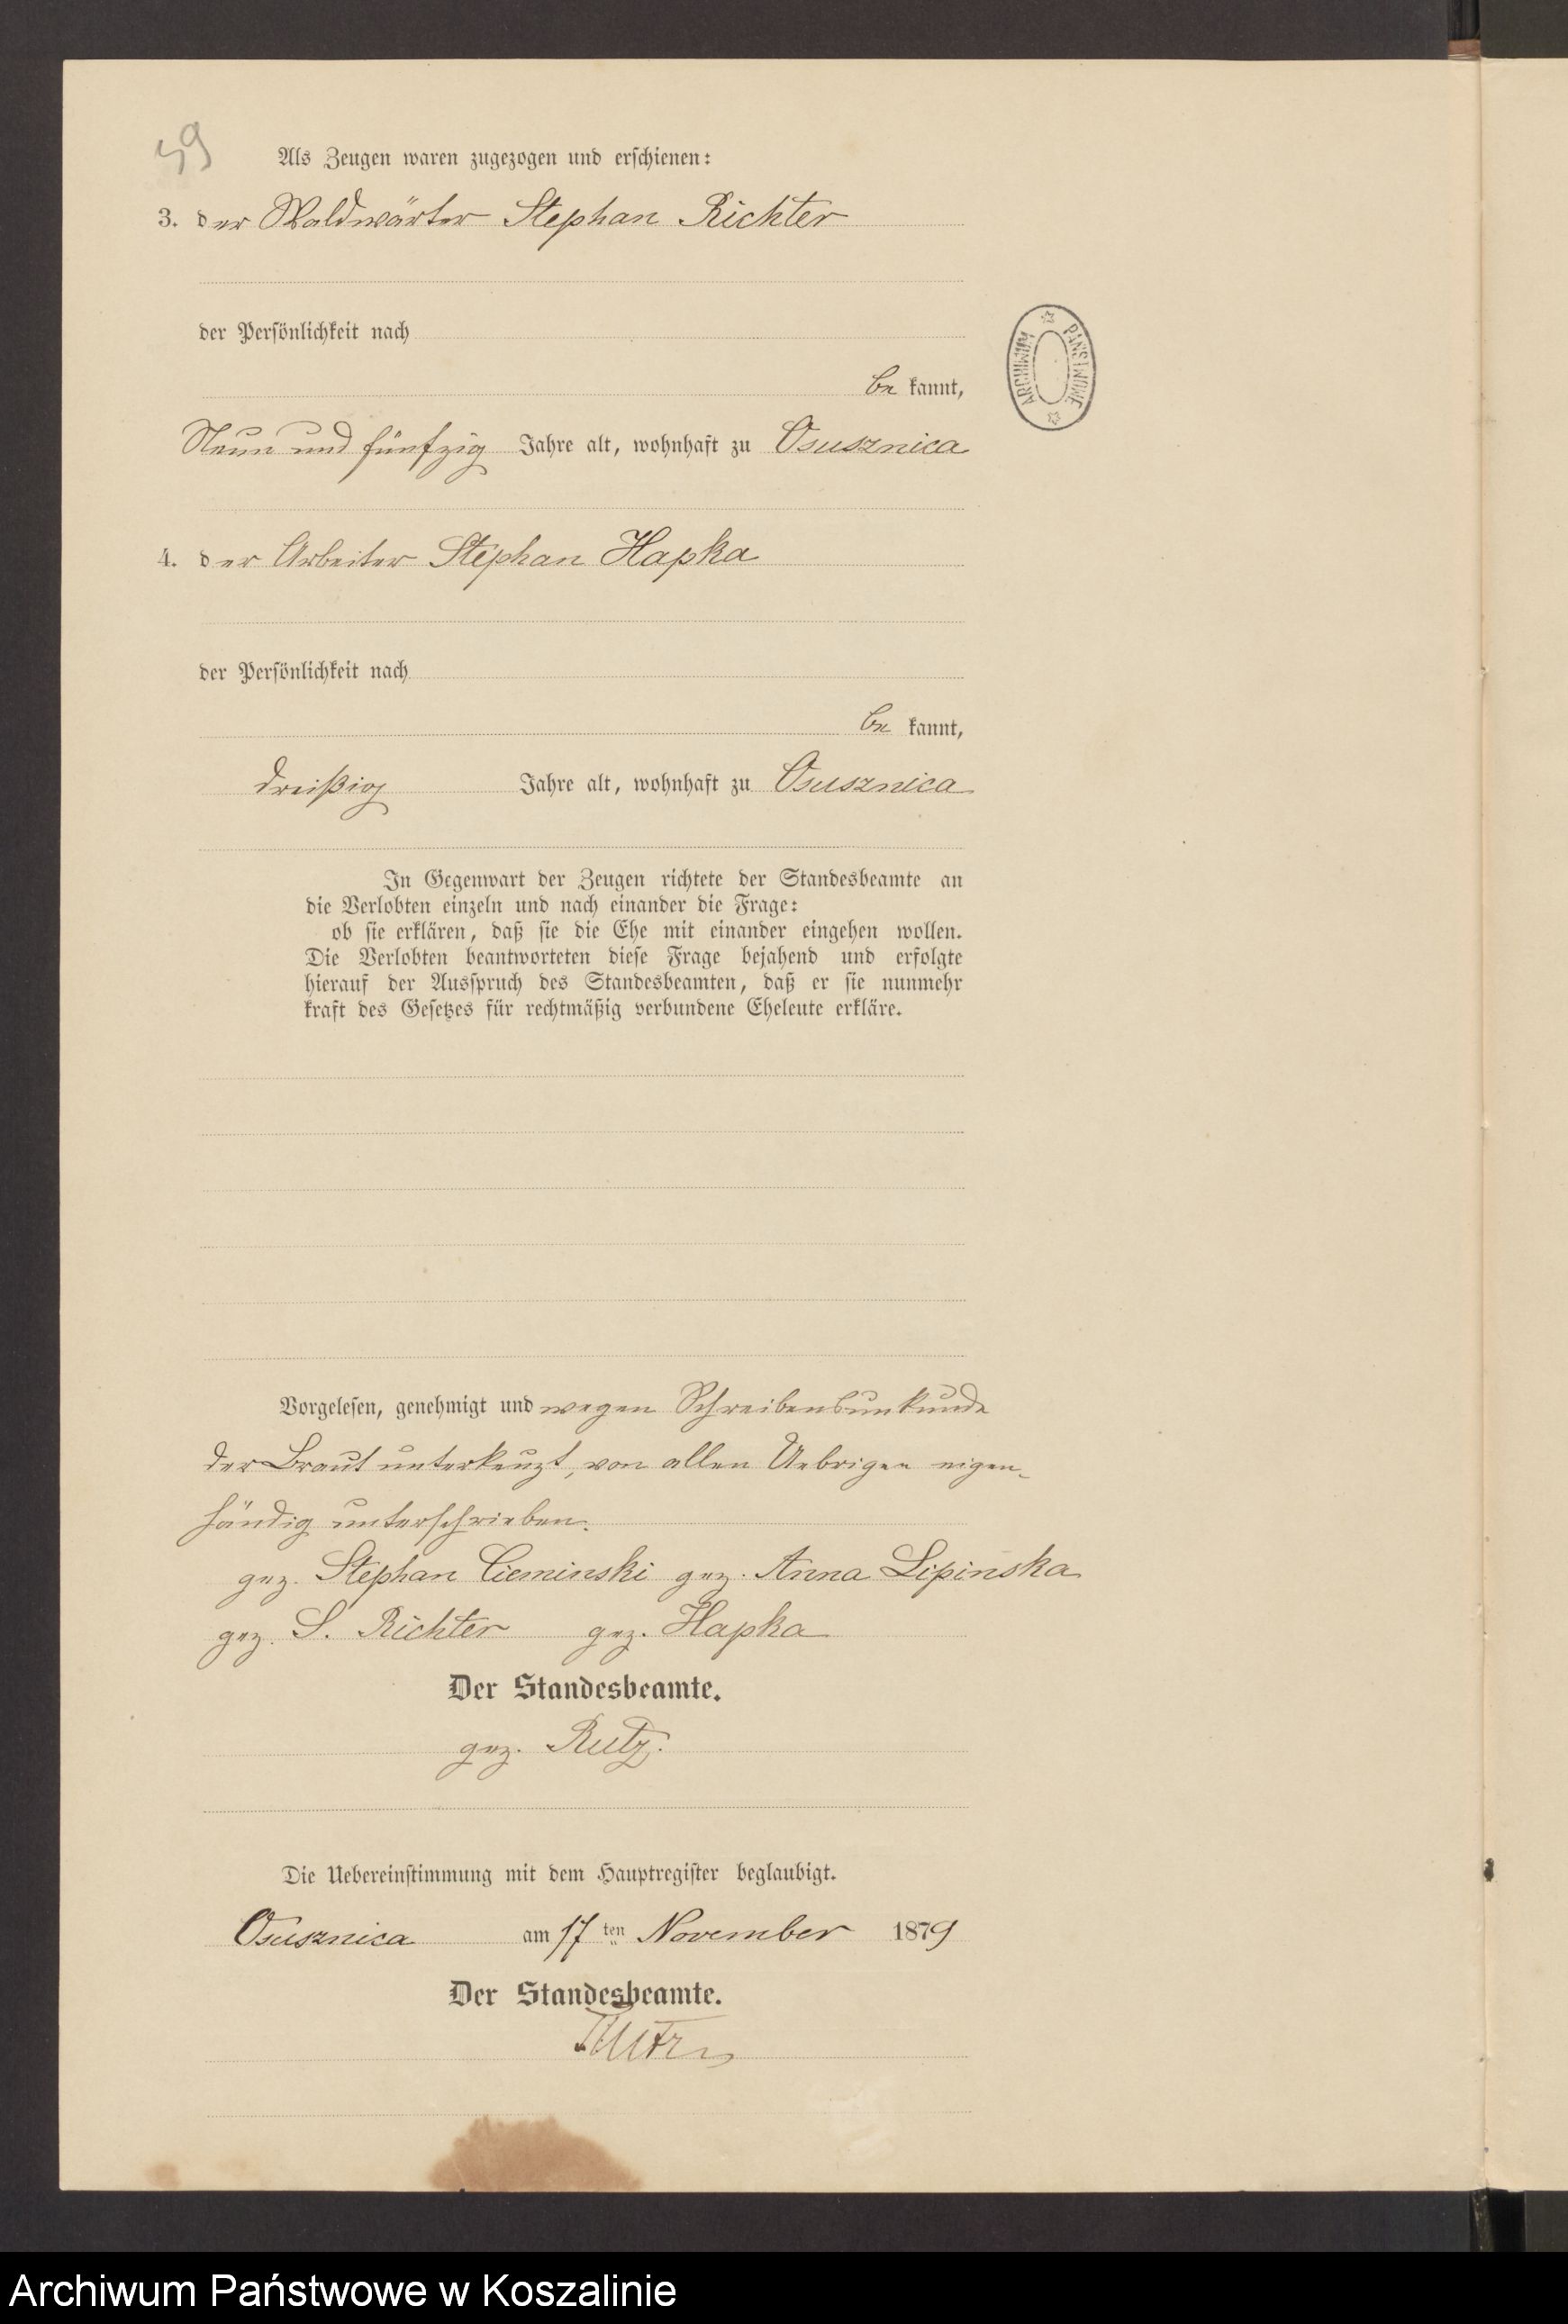 59
Als Zeugen waren zugezogen und erschienen:
3. der Waldwärter Stephan Richter
der Persönlichkeit nach
be kannt,
Neun und fünfzig Jahre alt, wohnhaft zu Osusznica
4. der Arbeiter Stephan Hapka
der Persönlichkeit nach
be kannt,
dreißig Jahre alt, wohnhaft zu Osusznica
In Gegenwart der Zeugen richtete der Standesbeamte an
die Verlobten einzeln und nach einander die Frage:
ob sie erklären, daß sie die Ehe mit einander eingehen wollen.
Die Verlobten beantworteten diese Frage bejahend und erfolgte
hierauf der Ausspruch des Standesbeamten, daß er sie nunmehr
kraft des Gesetzes für rechtmäßig verbundene Eheleute erkläre.
Vorgelesen, genehmigt und wegen Schreibensunkunde
der Braut unterkeuzt, von allen Uebrigen eigen-
händig unterschrieben.
gez. Stephan Cieminski gez. Anna Lipinska
gez. S. Richter gez. Hapka
Der Standesbeamte.
gez. Rutz.
Die Uebereinstimmung mit dem Hauptregister beglaubigt.
Osusznica am 17 ten November 1879
Der Standesbeamte.
Rutz
ARCHIWUM PAŃSTWOWE
Archiwum Państwowe w Koszalinie